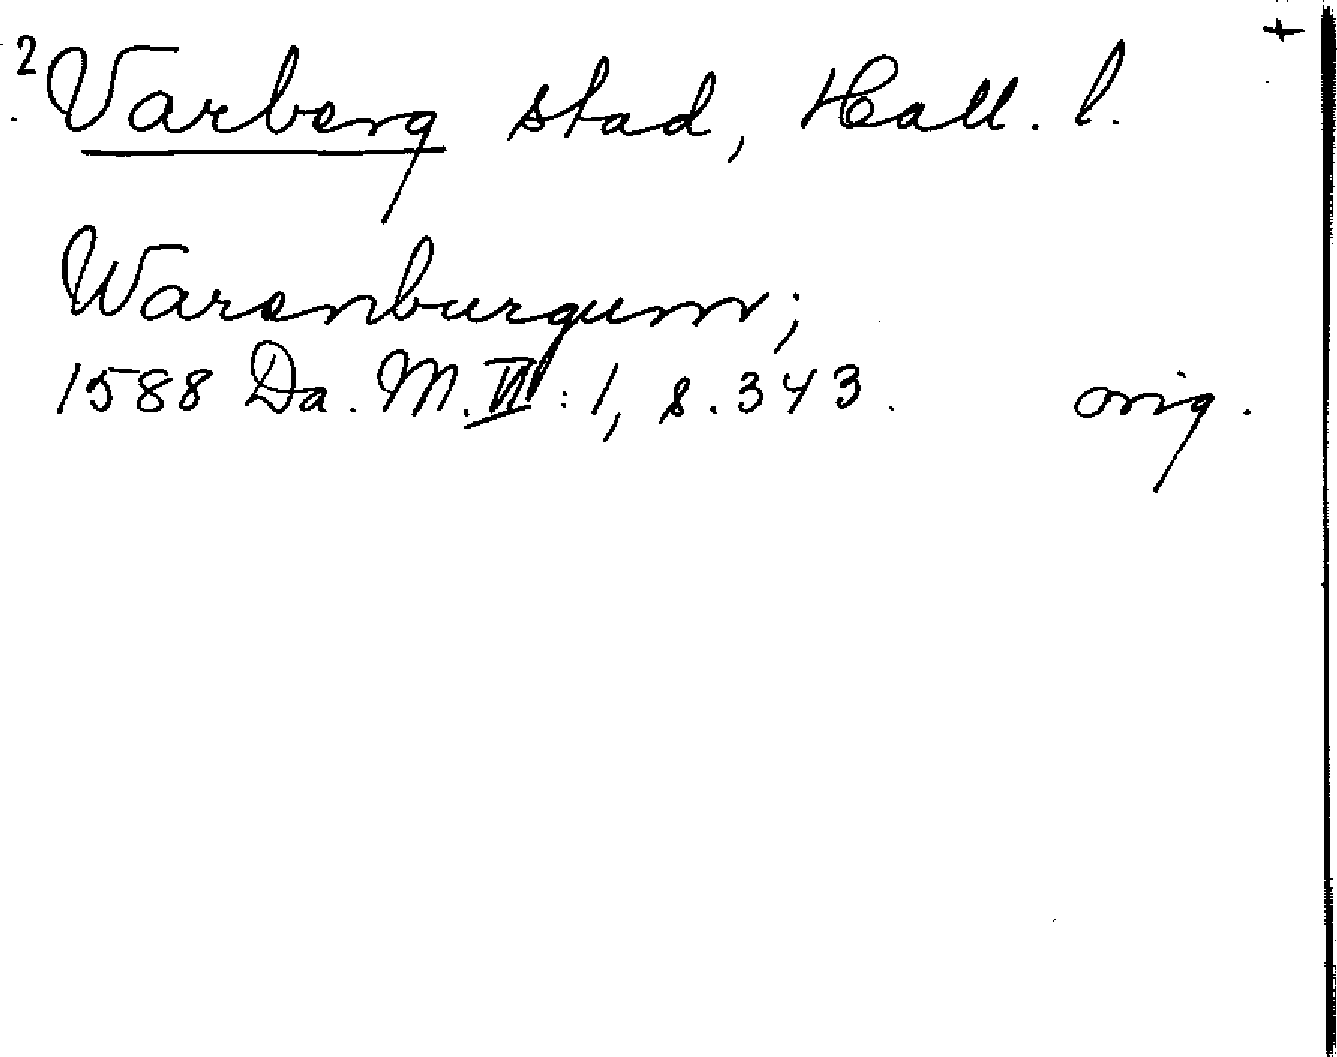 ²Varberg stad, Hall. l. +
Warenburgum;
1588 Da. M. VI: 1, s. 343. orig.